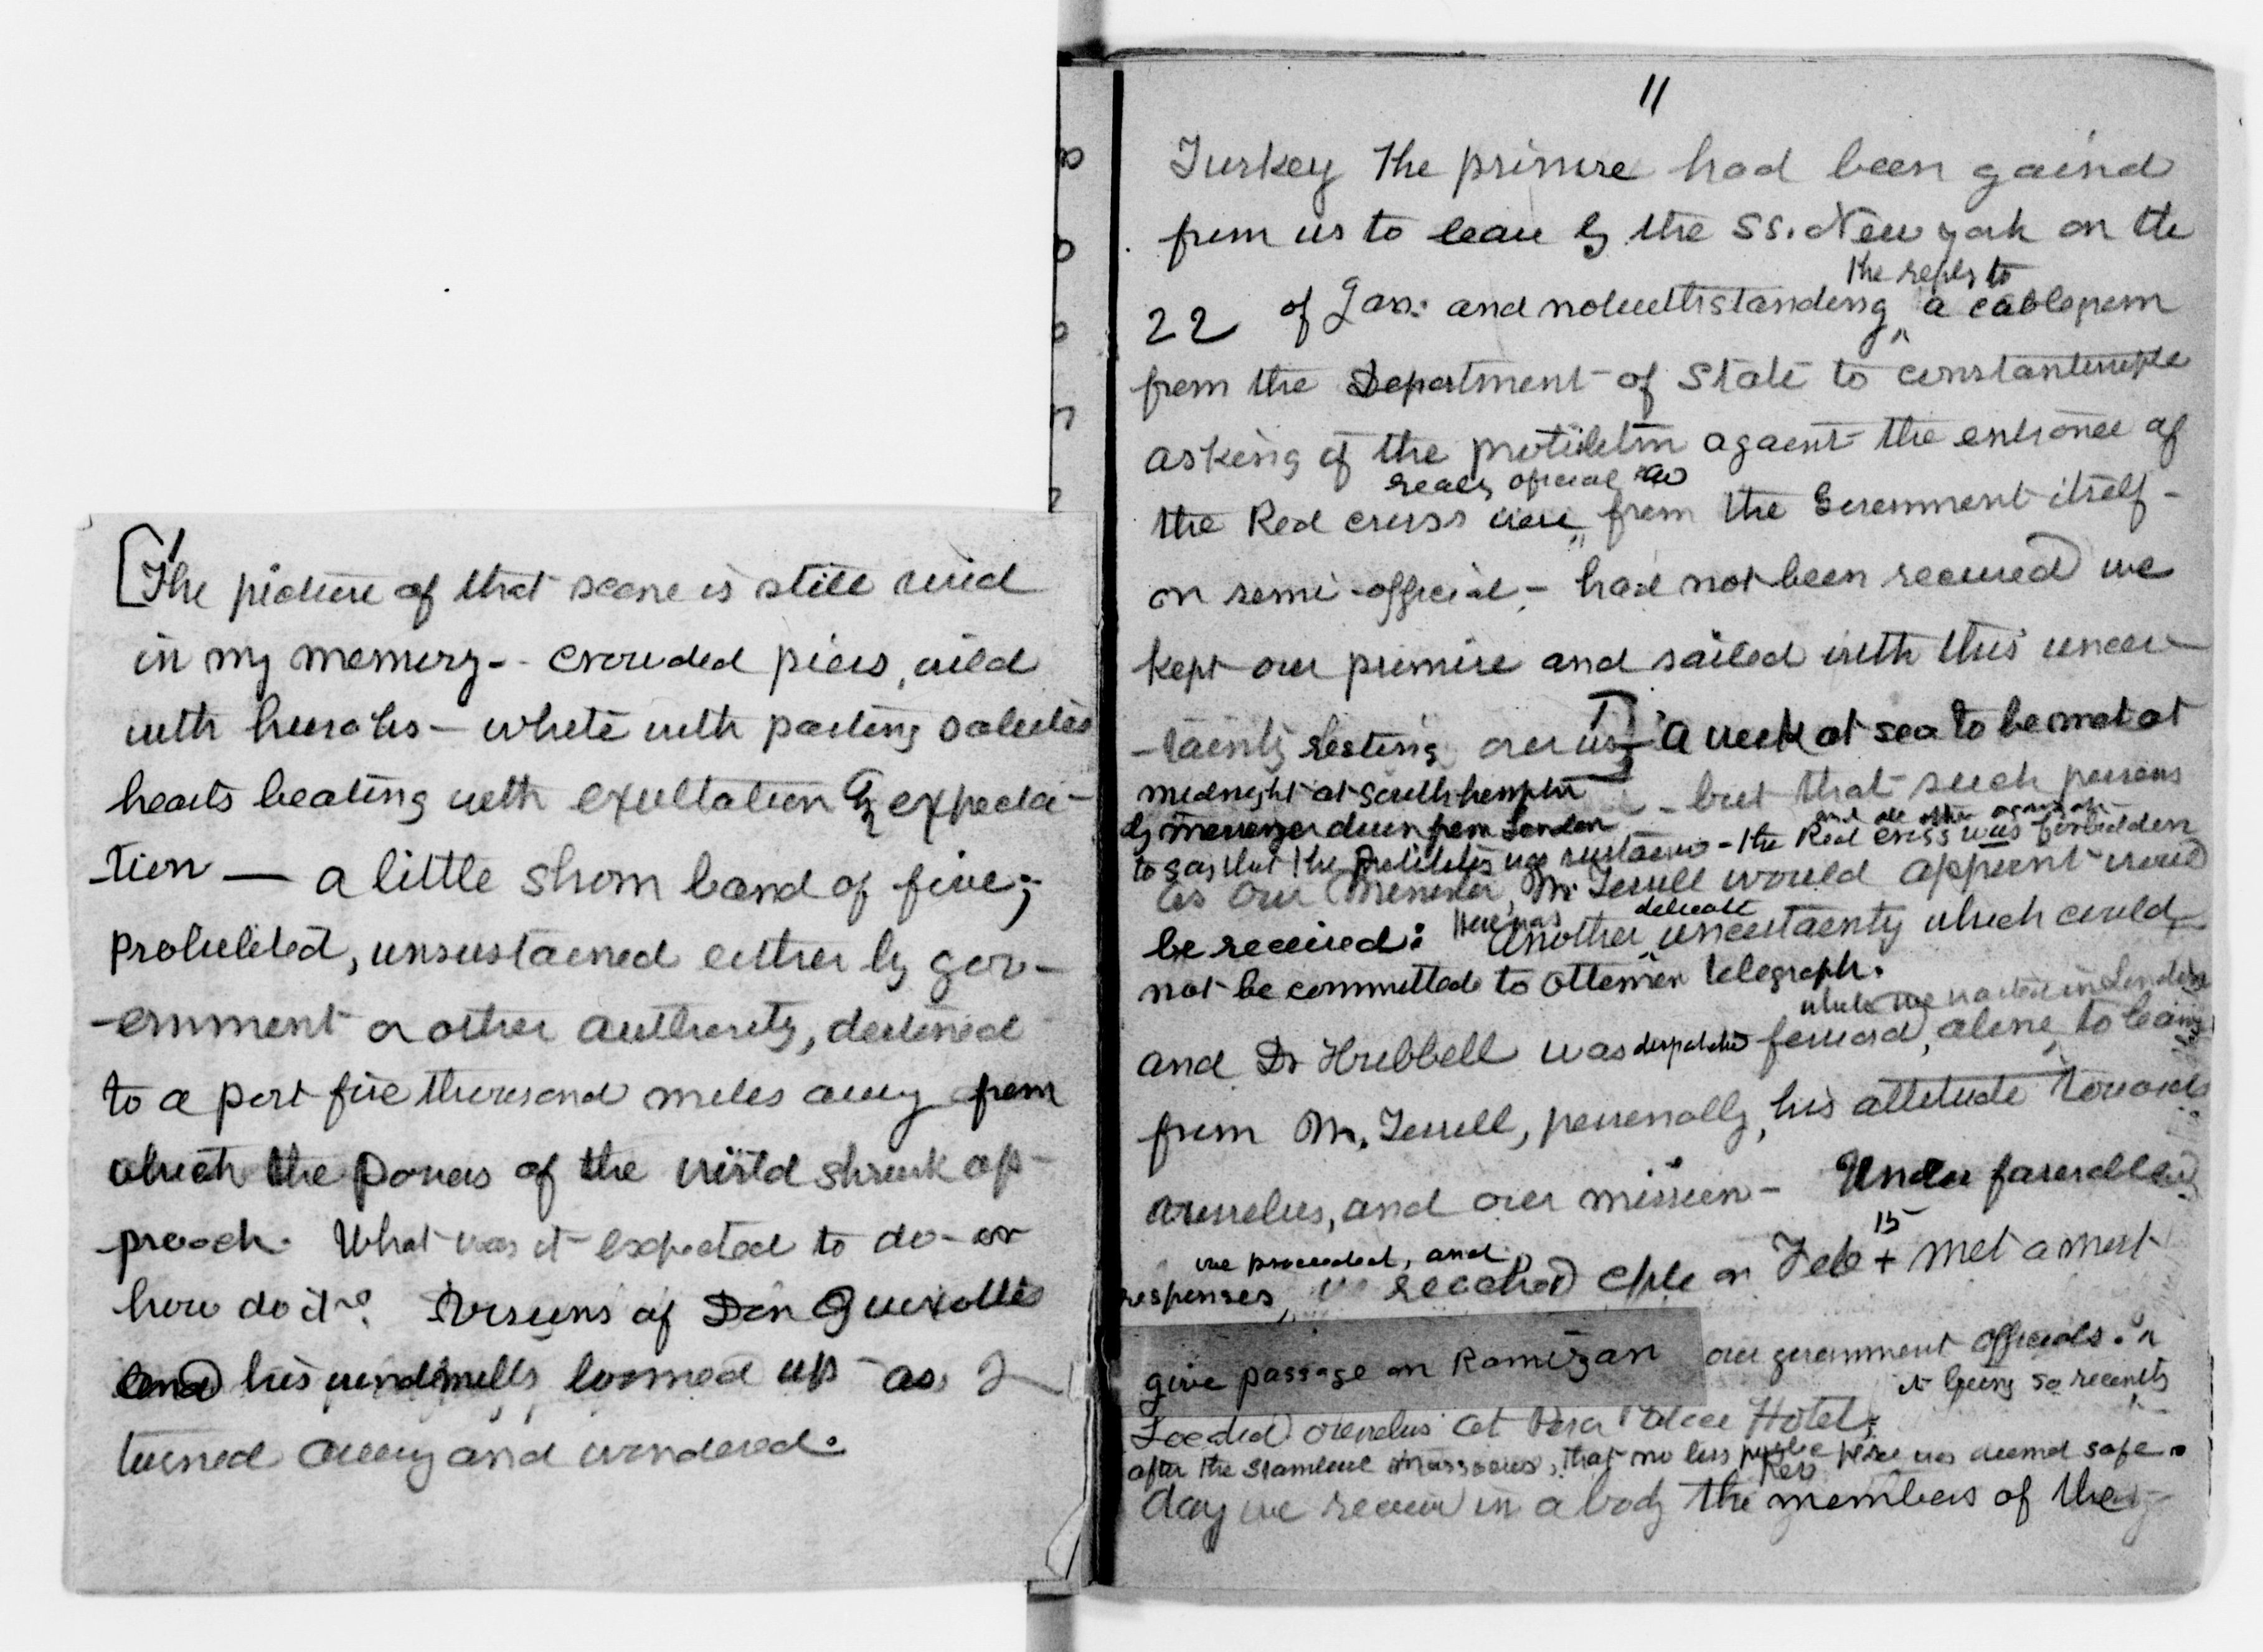 [The picture of that scene is still vivid
in my memory - - crowded piers, wild
with hurrahs — white with parting salutes
hearts beating with exultation & expecta-
-tion — a little shorn band of five;
prohibited, unsustained either by gov-
-ernment or other authority, destined
to a port five thousand miles away from
which the powers of the world shrunk ap-
proach. What was it expected to do - or
how do it? Visions of Don Quixotte
and his windmills loomed up - as I
turned away and wondered.
11
Turkey The promise had been gaind
from us to leave by the SS. New york on the
the reply to
22 of Jan: and notwithstanding ^ a cablegram
from the Department of State to constantinople
asking if the prohibition against the entrance of
really official as
the Red cross were ^ from the Government itself -
or semi-official, - had not been received we
kept our promise and sailed with this uncer-
-tainty resting over us] a week at sea to be met at
midnight at Southhampton - but that such persons
by messenger down from London
to say that the prohibition was sustained - the Red cross was forbidden
as our Minister, Mr Terrell would appoint would
Here was delicate
be received: another ^ uncertainty which could
not be committed to Ottoman telegraph.
while we waited in London
and Dr Hubbell was despatched forward, alone, to learn
from Mr. Terrell, personally, his attitude towards
ourselves, and our mission - Under favorable
we proceeded, and 15
responses, reached Cple on Feb + met a most
give passage on Ramizan our government officials.
it being so recently
Located ourselves at Pera Palace Hotel;
after the Stamboul massacres, that no less public place was deemed safe.
day we receive in a body the members of the